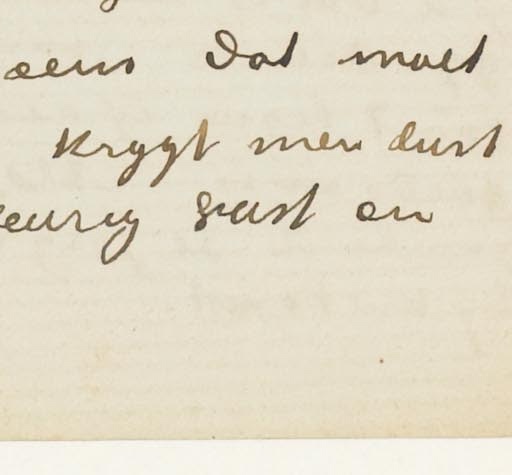 eens Dat moet
Krygt men dust
eurig gast en